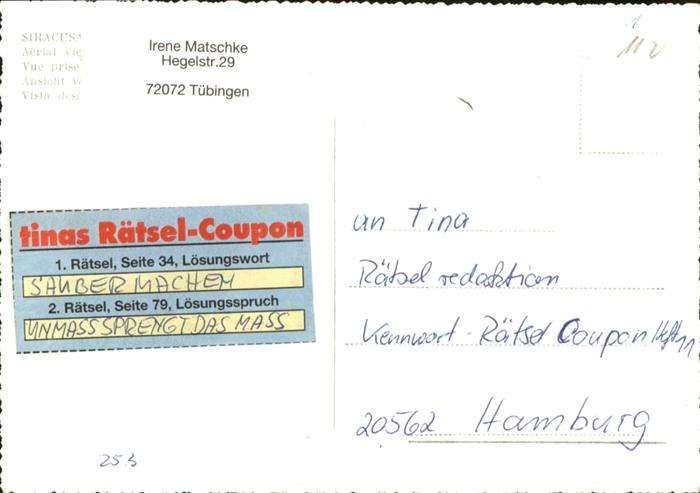 SIRACUSA
Aerial
Vue prise
Ansicht
Vista
Irene Matschke
Hegelstr.29
72072 Tübingen
112
tinas Rätsel-Coupon
1. Rätsel, Seite 34, Lösungswort
SAUBER MACHEN
2. Rätsel, Seite 79, Lösungsspruch
UNMASS SPRENGT DAS MASS
an Tina
Rätsel redaktion
Kennwort - Rätsel Coupon Heft 11
20562 Hamburg